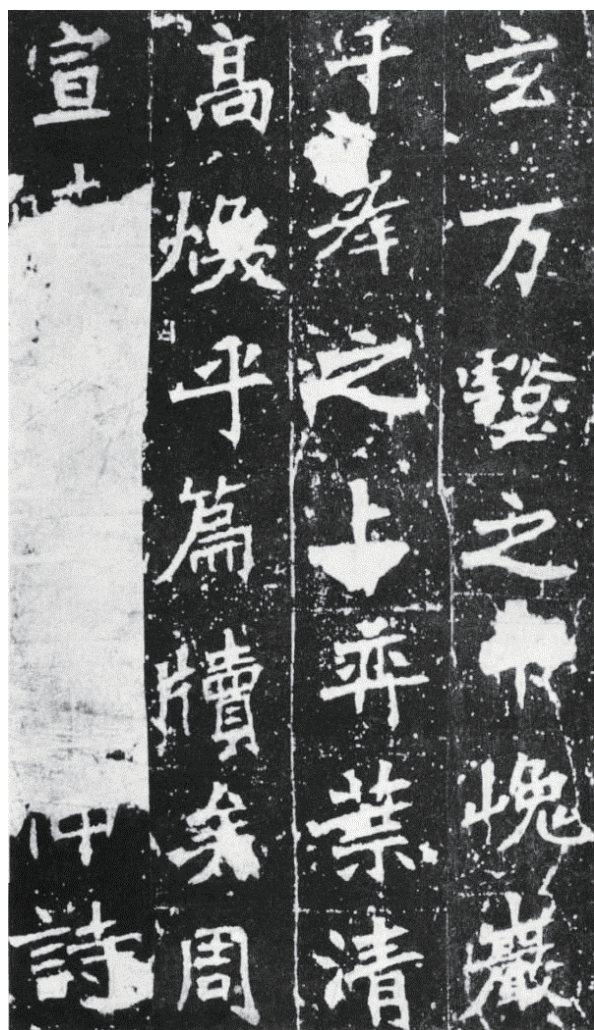 玄万壑之下巖
千峯之上弈葉清
高煥乎篇牘矣周
宣仲詩